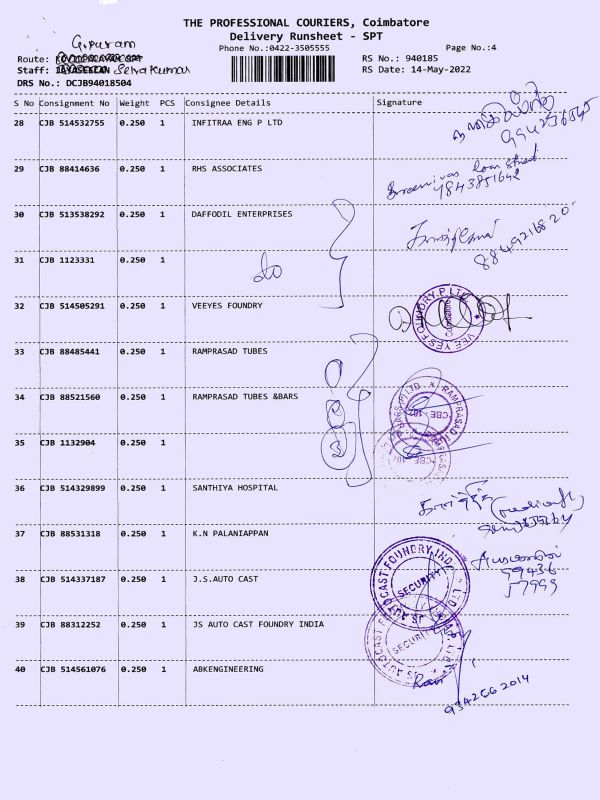 THE PROFESSIONAL COURIERS, Coimbatore
Delivery Runsheet - SPT
G.puram
Phone No.:0422-3505555
Page No.:4
Route:
RS No.: 940185
Staff: Selva Kumar
RS Date: 14-May-2022
DRS No.: DCJB94018504
S No Consignment No Weight PCS Consignee Details Signature
28 CJB 514532755 0.250 1 INFITRAA ENG P LTD
29 CJB 88414636 0.250 1 RHS ASSOCIATES
9843851642
30 CJB 513538292 0.250 1 DAFFODIL ENTERPRISES
31 CJB 1123331 0.250 1 do
32 CJB 514505291 0.250 1 VEEYES FOUNDRY
VEE YES FOUNDRY P LTD
33 CJB 88485441 0.250 1 RAMPRASAD TUBES
34 CJB 88521560 0.250 1 RAMPRASAD TUBES &BARS
35 CJB 1132904 0.250 1
36 CJB 514329899 0.250 1 SANTHIYA HOSPITAL
37 CJB 88531318 0.250 1 K.N PALANIAPPAN
99436
57993
38 CJB 514337187 0.250 1 J.S.AUTO CAST
SECURITY
39 CJB 88312252 0.250 1 JS AUTO CAST FOUNDRY INDIA
SECURITY
40 CJB 514561076 0.250 1 ABKENGINEERING
Ravi
9342662014